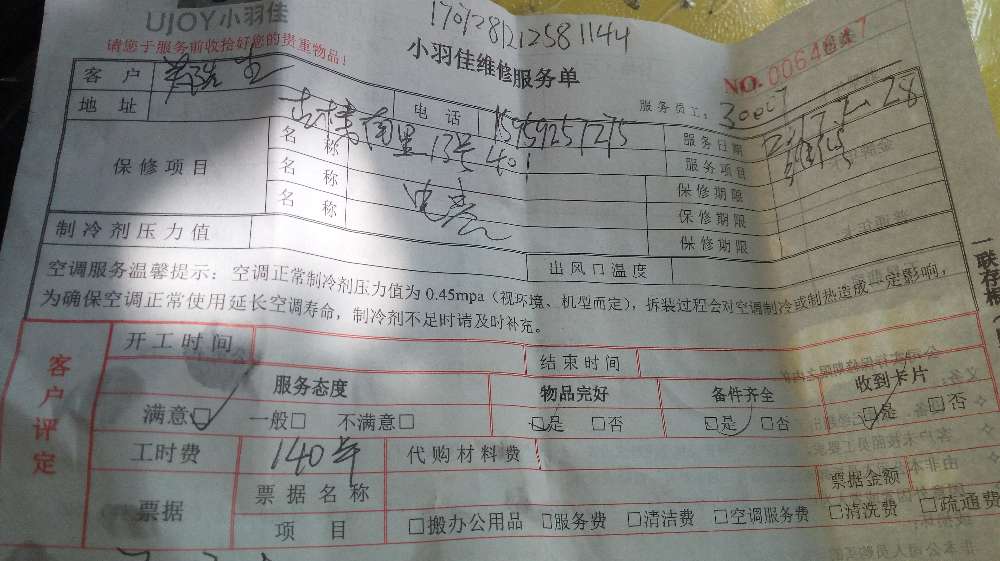 UJOY小羽佳
170128212581144
请您于服务前收拾好您的贵重物品!
小羽佳维修服务单
NO.
客户
电话 15959251275
服务员工: 30007
服务日期
地址 古楼南里13号401
服务项目 维修
保修项目
名称 电套
保修期限
名称
保修期限
名称
保修期限
制冷剂压力值
出风口温度
空调服务温馨提示: 空调正常制冷剂压力值为 0.45mpa (视环境、机型而定), 拆装过程会对空调制冷或制热造成一定影响,
为确保空调正常使用延长空调寿命, 制冷剂不足时请及时补充。
一联存根
客户评定
开工时间
结束时间
服务态度 物品完好 备件齐全 收到卡片
满意□ 一般□ 不满意□ □是 □否 □是 □否 □是 □否
工时费 140年 代购材料费
票据 票据名称 票据金额
项目 □搬办公用品 □服务费 □清洁费 □空调服务费 □清洗费 □疏通费